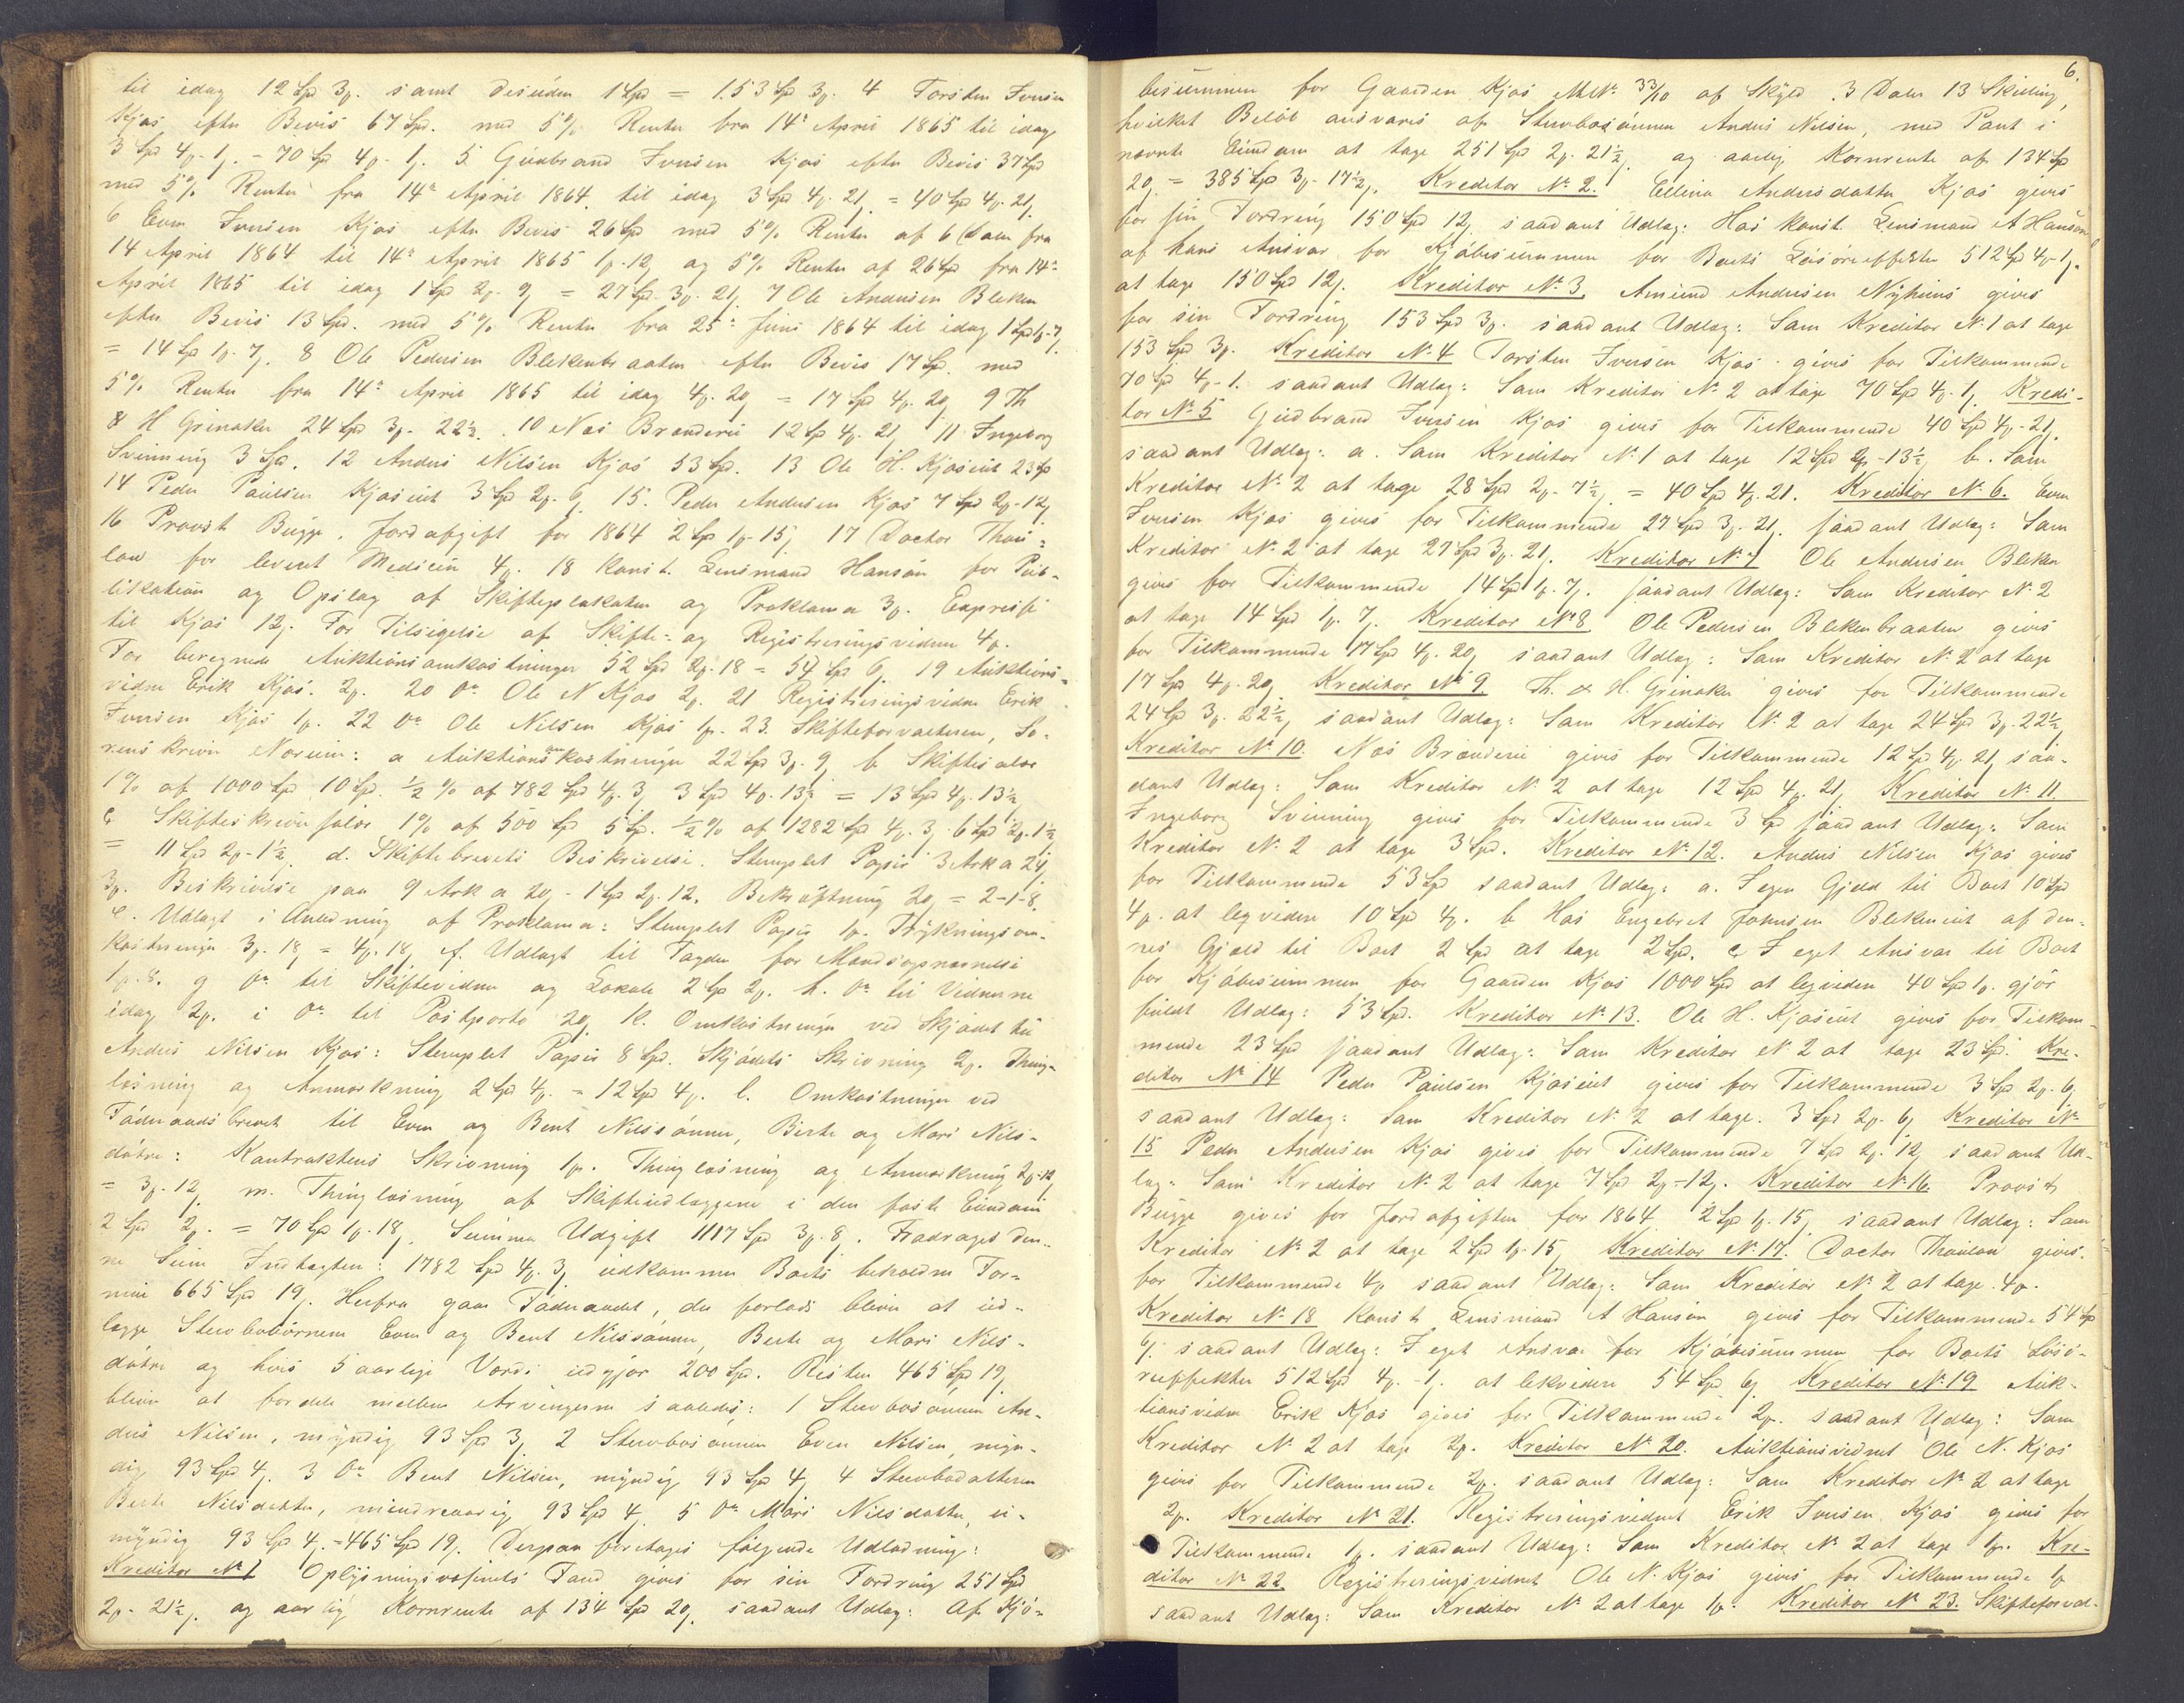 til idag 12 Spd 3 ƒ. samt desuden 1 Spd = 153 Spd 3 ƒ. 4 Torsten Iversen
Kjos efter Bevis 67 Spd. med 5% Renter fra 14de April 1865 til idag
3 Spd 4 ƒ - 1 ƒ. = 70 Spd 4 ƒ - 1 ƒ. 5. Gudbrand Iversen Kjos efter Bevis 37 Spd
med 5% Renter fra 14de April 1864 til idag 3 Spd 4 ƒ. 21 ƒ. = 40 Spd 4 ƒ. 21 ƒ.
6 Even Iversen Kjos efter Bevis 26 Spd med 5% Renter af 6 Daler fra
14 April 1864 til 14de April 1865 1 ƒ. 12 ƒ og 5% Renter af 26 Spd fra 14de
April 1865 til idag 1 Spd 2 ƒ. 9 ƒ = 27 Spd. 3 ƒ. 21 ƒ. 7 Ole Andersen Bleken
efter Bevis 13 Spd. med 5% Renter fra 25de Juni 1864 til idag 1 Spd 1 ƒ - 7 ƒ
= 14 Spd 1 ƒ. 7 ƒ. 8 Ole Pedersen Blekenbraaten efter Bevis 17 Spd. med
5% Renter fra 14de April 1865 til idag 4 ƒ. 20 ƒ = 17 Spd 4 ƒ. 20 ƒ 9 Th
& H Grinaker 24 Spd 3 ƒ - 22½. 10 Næs Brænderi 12 Spd 4 ƒ. 21 ƒ 11 Ingeborg
Svinning 3 Spd. 12 Anders Nilsen Kjos 53 Spd. 13 Ole H. Kjoseiet 23 Spd
14 Peder Paulsen Kjoseiet 3 Spd 2 ƒ. 6 ƒ 15. Peder Andersen Kjos 7 Spd 2 ƒ - 12 ƒ
16 Provst Bugge, Jordafgift for 1864 2 Spd 1 ƒ - 15 ƒ 17 Doctor Thau-
low for leveret Medicin 4 ƒ. 18 Konst. Lensmand Hanson for Pub-
likation og Opslag af Skifteplakater og Proklama 3 ƒ. Expresse
til Kjos 12 ƒ. For Tilsigelse af Skifte- og Registreringsvidner 4 ƒ.
For beregnede Auktionsomkostninger 52 Spd 2 ƒ. 18 = 54 Spd 6 ƒ. 19 Auktions-
vidne Erik Kjos. 2 ƒ. 20 Do Ole N Kjos 2 ƒ. 21 Registreringsvidne Erik
Iversen Kjos 1 ƒ. 22 Do Ole Nilsen Kjos 1 ƒ. 23. Skifteforvalteren, So-
renskriver Norum: a Auktionsomkostninger 22 Spd 3 ƒ. 9 ƒ b Skiftesalær
1% af 1000 Spd 10 Spd. ½% af 782 Spd 4 ƒ. 3 ƒ 3 Spd 4 ƒ. 13½ = 13 Spd 4 ƒ. 13½
c Skifteskriversalær 1% af 500 Spd 5 Sp. ½% af 1282 Spd 4 ƒ. 3 ƒ 6 Spd 2 ƒ. 1½
= 11 Spd 2 ƒ - 1½. d. Skiftebrevets Beskrivelse. Stemplet Papir 3 Ark a 24 ƒ
3 ƒ. Beskrivelse paa 9 Ark a 20 ƒ - 1 Spd 2 ƒ. 12. Bekræftning 20 ƒ = 2-1-8.
e. Udlagt i Anledning af Proklama: Stemplet Papir 1 ƒ. Trykningsom-
kostninger 3 ƒ. 18 ƒ = 4 ƒ. 18 ƒ f. Udlagt til Fogden for Mandsopnævnelse
1 ƒ. 8. g Do til Skiftevidner og Lokale 2 Spd 2 ƒ. h. Do til Vidnerne
idag 2 ƒ. i Do til Postporto 20 ƒ. k. Omkostninger ved Skjødet til
Anders Nilsen Kjos: Stemplet Papir 8 Spd. Skjødets Skrivning 2 ƒ. Thing-
læsning og Anmærkning 2 Spd 4 ƒ. = 12 Spd 4 ƒ. l. Omkostninger ved
Føderaadsbrevet til Even og Bent Nilssønner, Berte og Mari Nils-
døtre: Kontraktens Skrivning 1 ƒ. Thinglæsning og Anmærkning 2 ƒ - 12 ƒ
= 3 ƒ. 12 ƒ m. Thinglæsning af Skifteudlæggene i den faste Eiendom
2 Spd 2 ƒ. = 70 Spd 1 ƒ. 18 ƒ. Summa Udgift 1117 Spd 3 ƒ. 8 ƒ. Fradrages den-
ne Sum Indtægten: 1782 Spd 4 ƒ. 3 ƒ udkommer Boets beholdne For-
mue 665 Spd 19 ƒ. Herfra gaar Føderaadet, der forlods bliver at ud-
lægge Stervbobørnene Even og Bent Nilssønner, Berte og Mari Nils-
døtre og hvis 5 aarlige Værdi udgjør 200 Spd. Resten 465 Spd 19 ƒ
bliver at fordele mellem Arvingerne saaledes: 1 Stervbosønnen An-
ders Nilsen, myndig 93 Spd 3 ƒ 2 Stervbosønnen Even Nilsen, myn-
dig 93 Spd 4 ƒ. 3 Do Bent Nilsen, myndig 93 Spd 4 ƒ 4 Stervbodatteren
Berte Nilsdatter, mindreaarig 93 Spd 4 ƒ 5 Do Mari Nilsdatter, u-
myndig 93 Spd 4 ƒ. = 465 Spd 19 ƒ. Derpaa foretages følgende Udlodning:
Kreditor No 1 Oplysningsvæsenets Fond gives for sin Fordring 251 Spd
2 ƒ - 21½ ƒ. og aarlig Kornrente af 134 Spd 20 ƒ. saadant Udlæg: Af Kjø-
6.
besummen for Gaarden Kjos MNo. 33/10 af Skyld 3 Daler 13 Skilling,
hvilket Beløb ansvares af Stervbosønnen Anders Nilsen, med Pant i
nævnte Eiendom at tage 251 Spd 2 ƒ. 21½ ƒ. og aarlig Kornrente af 134 Spd
20 ƒ. = 385 Spd 3 ƒ - 17½ ƒ. Kreditor No 2. Ellina Andersdatter Kjos gives
for sin Fordring 150 Spd 12 ƒ saadant Udlæg: Hos konst. Lensmand A Hanson
af hans Ansvar for Kjøbesummen for Boets Løsøreeffekter 512 Spd 4 ƒ - 1 ƒ.
at tage 150 Spd 12 ƒ. Kreditor No 3. Amund Andersen Nyhuus gives
for sin Fordring 153 Spd 3 ƒ. saadant Udlæg: Som Kreditor No 1 at tage
153 Spd 3 ƒ. Kreditor No 4 Torsten Iversen Kjos gives for Tilkommende
70 Spd 4 ƒ - 1. saadant Udlæg: Som Kreditor No 2 at tage 70 Spd 4 ƒ. 1 ƒ. Kredi-
tor No 5 Gudbrand Iversen Kjos gives for Tilkommende 40 Spd 4 ƒ - 21 ƒ.
saadant Udlæg: a. Som Kreditor No 1 at tage 12 Spd 2 ƒ - 13½ ƒ b. Som
Kreditor No 2 at tage 28 Spd 2 ƒ - 7½ ƒ = 40 Spd 4 ƒ. 21. Kreditor No 6. Even
Iversen Kjos gives for Tilkommende 27 Spd 3 ƒ. 21 ƒ. saadant Udlæg: Som
Kreditor No 2 at tage 27 Spd 3 ƒ. 21 ƒ. Kreditor No 7 Ole Andersen Bleken
gives for Tilkommende 14 Spd 1 ƒ. 7 ƒ. saadant Udlæg: Som Kreditor No 2
at tage 14 Spd 1 ƒ. 7 ƒ. Kreditor No 8 Ole Pedersen Blekenbraaten gives
for Tilkommende 17 Spd 4 ƒ. 20 ƒ saadant Udlæg: Som Kreditor No 2 at tage
17 Spd 4 ƒ. 20 ƒ Kreditor No 9 Th. & H. Grinaker gives for Tilkommende
24 Spd 3 ƒ. 22½ ƒ saadant Udlæg: Som Kreditor No 2 at tage 24 Spd 3 ƒ. 22½
Kreditor No 10. Næs Brænderi gives for Tilkommende 12 Spd 4 ƒ. 21 ƒ saa-
dant Udlæg: Som Kreditor No 2 at tage 12 Spd 4 ƒ. 21 ƒ Kreditor No 11
Ingeborg Svinning gives for Tilkommende 3 Spd saadant Udlæg: Som
Kreditor No 2 at tage 3 Spd. Kreditor No 12. Anders Nilsen Kjos gives
for Tilkommende 53 Spd saadant Udlæg: a. I egen Gjeld til Boet 10 Spd
4 ƒ. at leqvidere 10 Spd 4 ƒ. b Hos Engebret Johnsen Blekeneiet af den-
nes Gjæld til Boet 2 Spd at tage 2 Spd. c I eget Ansvar til Boet
for Kjøbesummen for Gaarden Kjos 1000 Spd at leqvidere 40 Spd 1 ƒ. gjør
fuldt Udlæg: 53 Spd. Kreditor No 13. Ole H. Kjoseiet gives for Tilkom-
mende 23 Spd saadant Udlæg: Som Kreditor No 2 at tage 23 Spd. Kre-
ditor No 14 Peder Paulsen Kjoseiet gives for Tilkommende 3 Spd 2 ƒ. 6 ƒ
saadant Udlæg: Som Kreditor No 2 at tage. 3 Spd 2 ƒ. 6 ƒ Kreditor No
15 Peder Andersen Kjos gives for Tilkommende 7 Spd 2 ƒ. 12 ƒ saadant Ud-
læg: Som Kreditor No 2 at tage 7 Spd 2 ƒ - 12 ƒ. Kreditor No 16. Provst
Bugge gives for Jordafgiften for 1864 2 Spd 1 ƒ. 15 ƒ saadant Udlæg: Som
Kreditor No 2 at tage 2 Spd 1 ƒ. 15 ƒ Kreditor No 17. Doctor Thaulow gives
for Tilkommende 4 ƒ saadant Udlæg: Som Kreditor No 2 at tage. 4 ƒ.
Kreditor No 18 konst Lensmand A Hanson gives for Tilkommende 54 Spd
6 ƒ. saadant Udlæg: I eget Ansvar for Kjøbesummen for Boets Løsø-
reeffekter 512 Spd 4 ƒ. - 1 ƒ. at lekvidere 54 Spd 6 ƒ Kreditor No 19 Auk-
tionsvidne Erik Kjos gives for Tilkommende 2 ƒ. saadant Udlæg: Som
Kreditor No 2 at tage 2 ƒ. Kreditor No 20. Auktionsvidnet Ole N. Kjos
gives for Tilkommende 2 ƒ. saadant Udlæg: Som Kreditor No 2 at tage
2 ƒ. Kreditor No 21. Registreringsvidnet Erik Iversen Kjos gives for
Tilkommende 1 ƒ. saadant Udlæg: Som Kreditor No 2 at tage 1 ƒ. Kre-
ditor No 22. Registreringsvidnet Ole N. Kjos gives for Tilkommende 1 ƒ
saadant Udlæg: Som Kreditor No 2 at tage 1 ƒ. Kreditor No 23. Skifteforval-